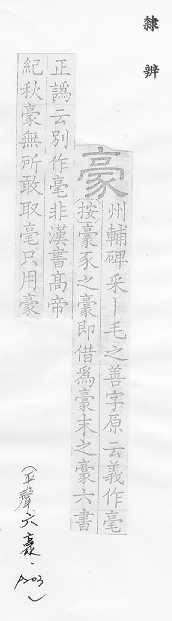 隸辨
豪
州輔碑采丨毛之善字原云義作毫
按豪豕之豪即借爲豪末之豪六書
正譌云別作毫非漢書髙帝
紀秋豪無所敢取毫只用豪
(平聲六豪·p203)